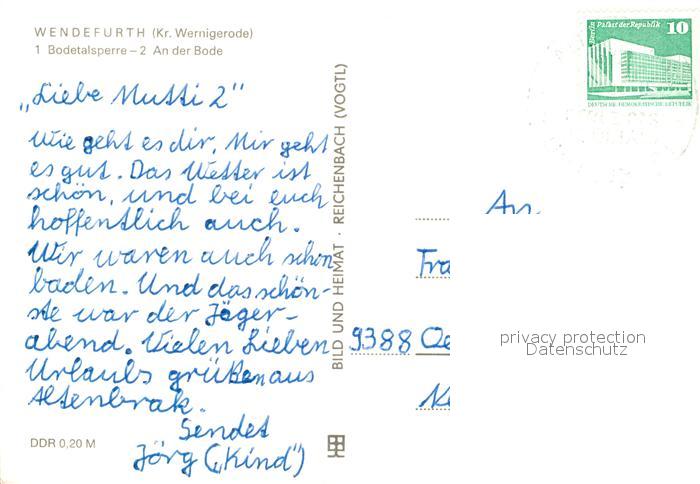 WENDEFURTH (Kr. Wernigerode)
1 Bodetalsperre – 2 An der Bode
„Liebe Mutti 2"
Wie geht es dir, Mir geht
es gut. Das Wetter ist
schön, und bei euch
hoffentlich auch.
Wir waren auch schon
baden. Und das schön-
ste war der Jäger-
abend. Vielen Lieben
Urlaubs grüßen aus
Altenbrak.
Sendet
Jörg („Kind")
DDR 0,20 M
BILD UND HEIMAT · REICHENBACH (VOGTL)
Berlin Palast der Republik 10
DEUTSCHE DEMOKRATISCHE REPUBLIK
An
Fra
9388 Oe
privacy protection
Datenschutz